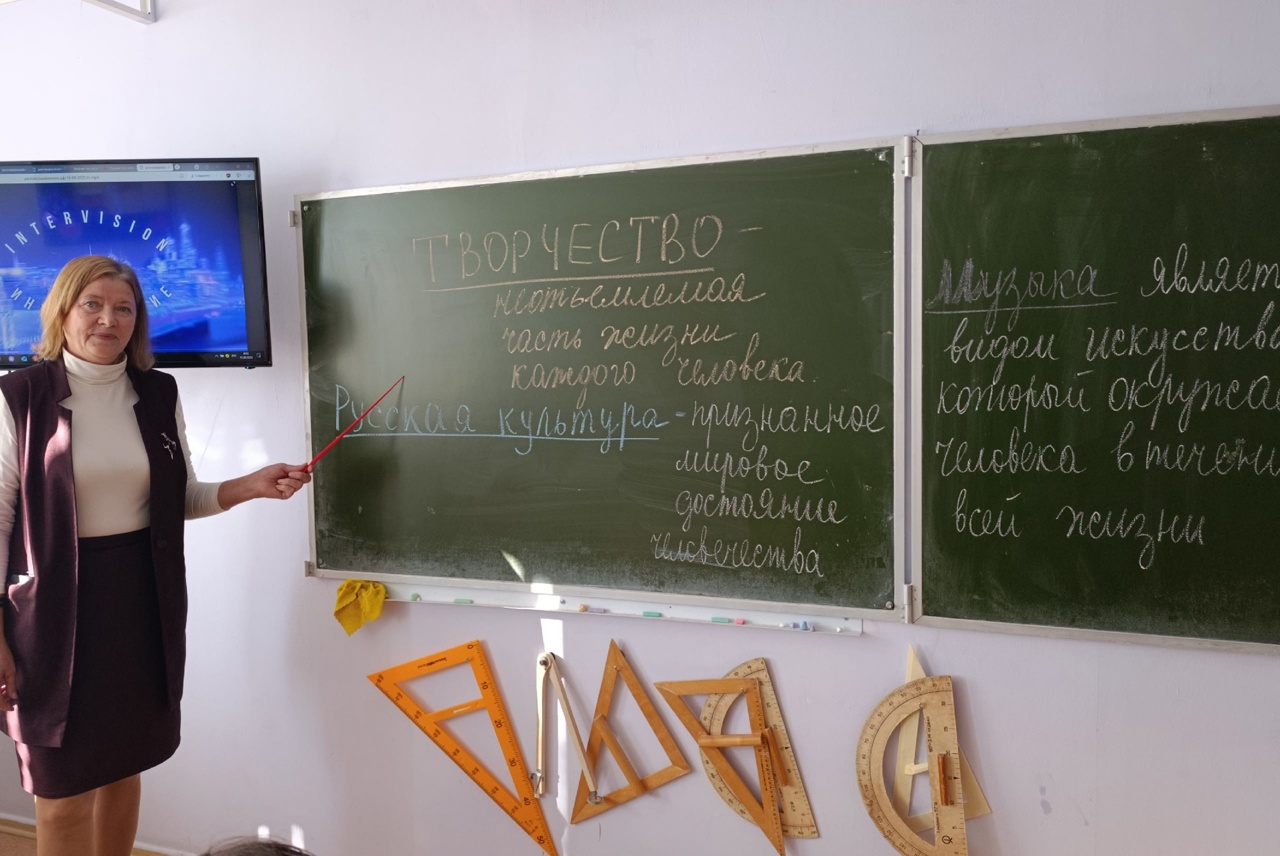 INTERVISION
ТВОРЧЕСТВО -
неотъемлемая
часть жизни
каждого человека.
Русская культура - признанное
мировое
достояние
человечества
Музыка являет
видом искусства
который окружа
человека в течени
всей жизни